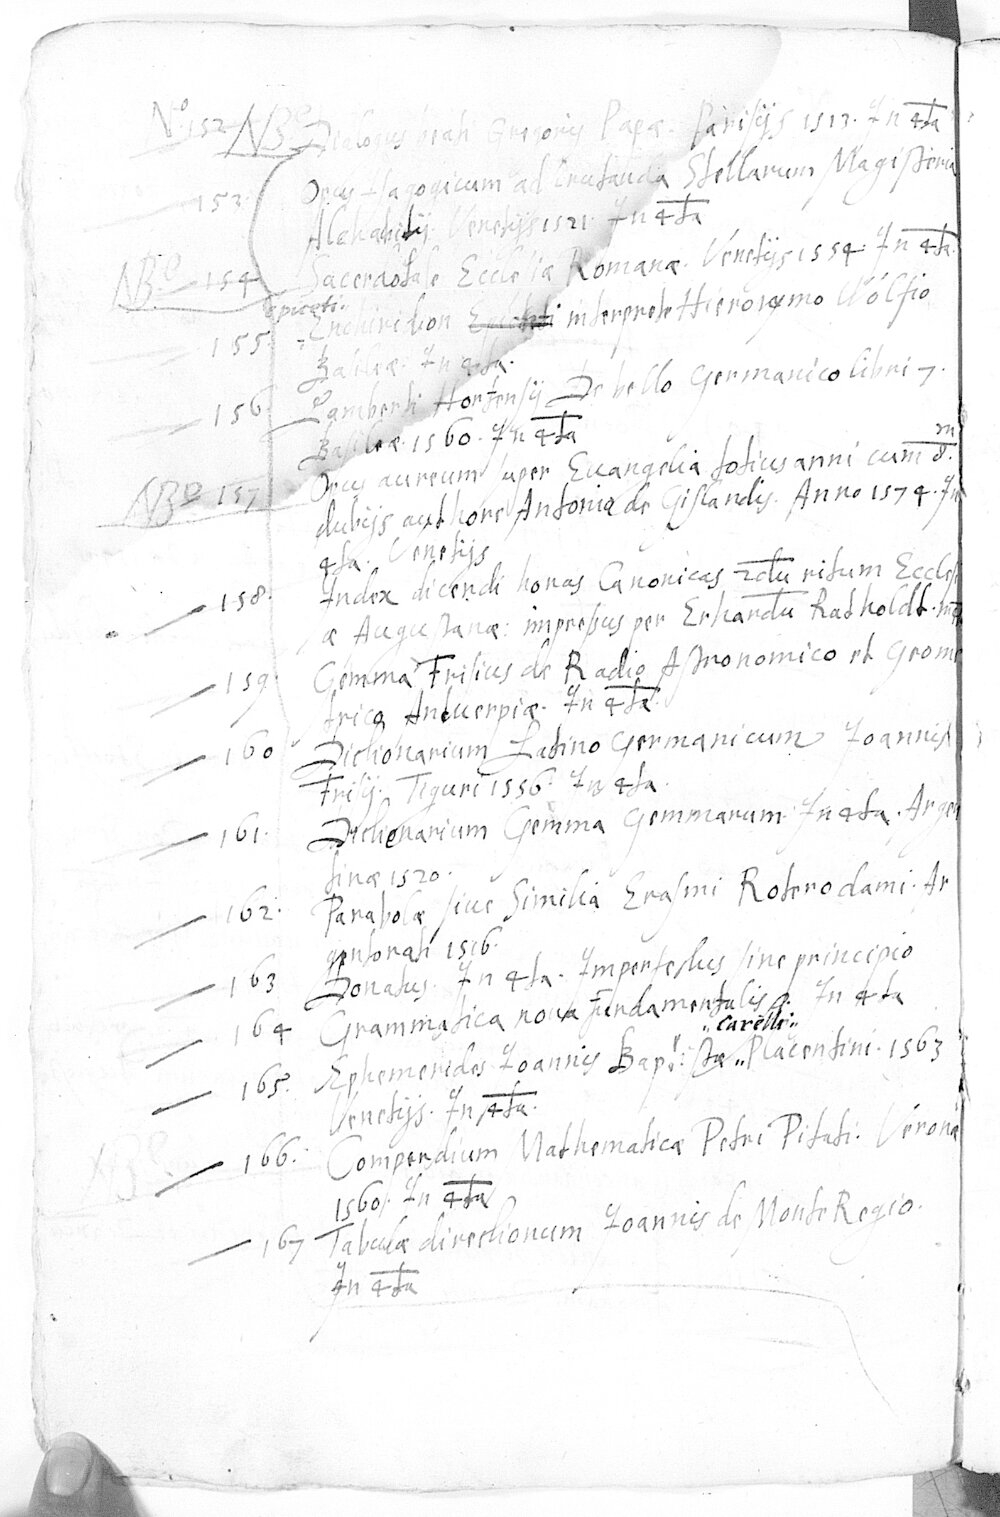 No 152 NB Dialogus beati Gregorij Papæ. Parisijs 1513. In 4ta
153. Opus Isagogicum ad scrutanda Stellarum Magisteria
Alchabitij. Venetijs 1521. In 4ta
NB 154 Sacerdotale Ecclesiæ Romanæ. Venetijs 1554. In 4ta.
epicteti
155. Enchiridion interprete Hieronymo Wolfio
Basileæ. In 4ta.
156 Lamberti Hortensij De bello Germanico libri 7.
Basileæ. 1560. In 4ta
NB 157 Opus aureum super Euangelia totius anni cum
dubijs authore Antonio de Gislandis. Anno 1574. In
4ta. Venetijs
158. Index dicendi horas Canonicas ritum Ecclesi
æ Augustanæ: impressus per Erhardu Ratholdt.
159. Gemma Frisius de Radio Astronomico et Geome
trico Antuerpiæ. In 4ta.
160 Dictionarium Latino Germanicum Joannis
Frisij. Tiguri 1556. In 4ta.
161. Dictionarium Gemma Gemmarum. In 4ta. Argen
tinæ 1520.
162. Parabolæ siue Similia Erasmi Roterodami. Ar
gentorati 1516.
163 Donatus. In 4ta. Imperfectus sine principio
164 Grammatica noua fundamentalis. In 4ta
Carelli
165. Ephemerides Joannis Bap: tæ Placentini. 1563
Venetijs. In 4ta.
166. Compendium Mathematicæ Petri Pitati. Veronæ
1560. In 4ta
167 Tabulæ directionum Joannis de Monte Regio.
In 4ta